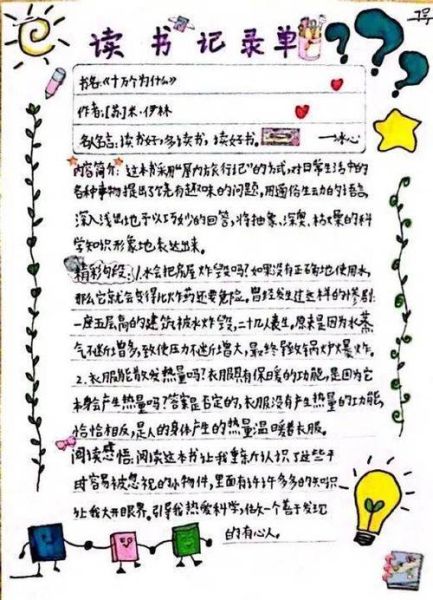 读书记录单
书名:《十万个为什么》
作者:[苏]米·伊林
名人名言:读书好,多读书,读好书。——冰心
内容简介:这本书采用“屋内旅行记”的方式,对日常生活中的
各种事物提出了饶有趣味的问题,用通俗生动的语言,
深入浅出地予以巧妙的回答,将抽象、深奥、枯燥的科
学知识形象地表达出来。
精彩句段:1.水会把房屋炸毁吗?如果没有正确地使用水,
那么它就会变得比炸药还要危险。曾经发生过这样的惨剧:
一座五层高的建筑被水炸毁,二十几人丧生。原来是因为水蒸
气不断增多,致使压力不断增大,最终导致锅炉爆炸。
2.衣服能散发热量吗?衣服具有保暖的功能,是因为它
本身会产生热量吗?答案是否定的,衣服没有产生热量的功能,
恰恰相反,是人的身体产生的热量温暖着衣服。
阅读感悟:阅读这本书让我重新认识了这些平
时容易被忽视的小物件,里面有许许多多的知识
让我大开眼界。引导我热爱科学,做一个善于发现
的有心人。